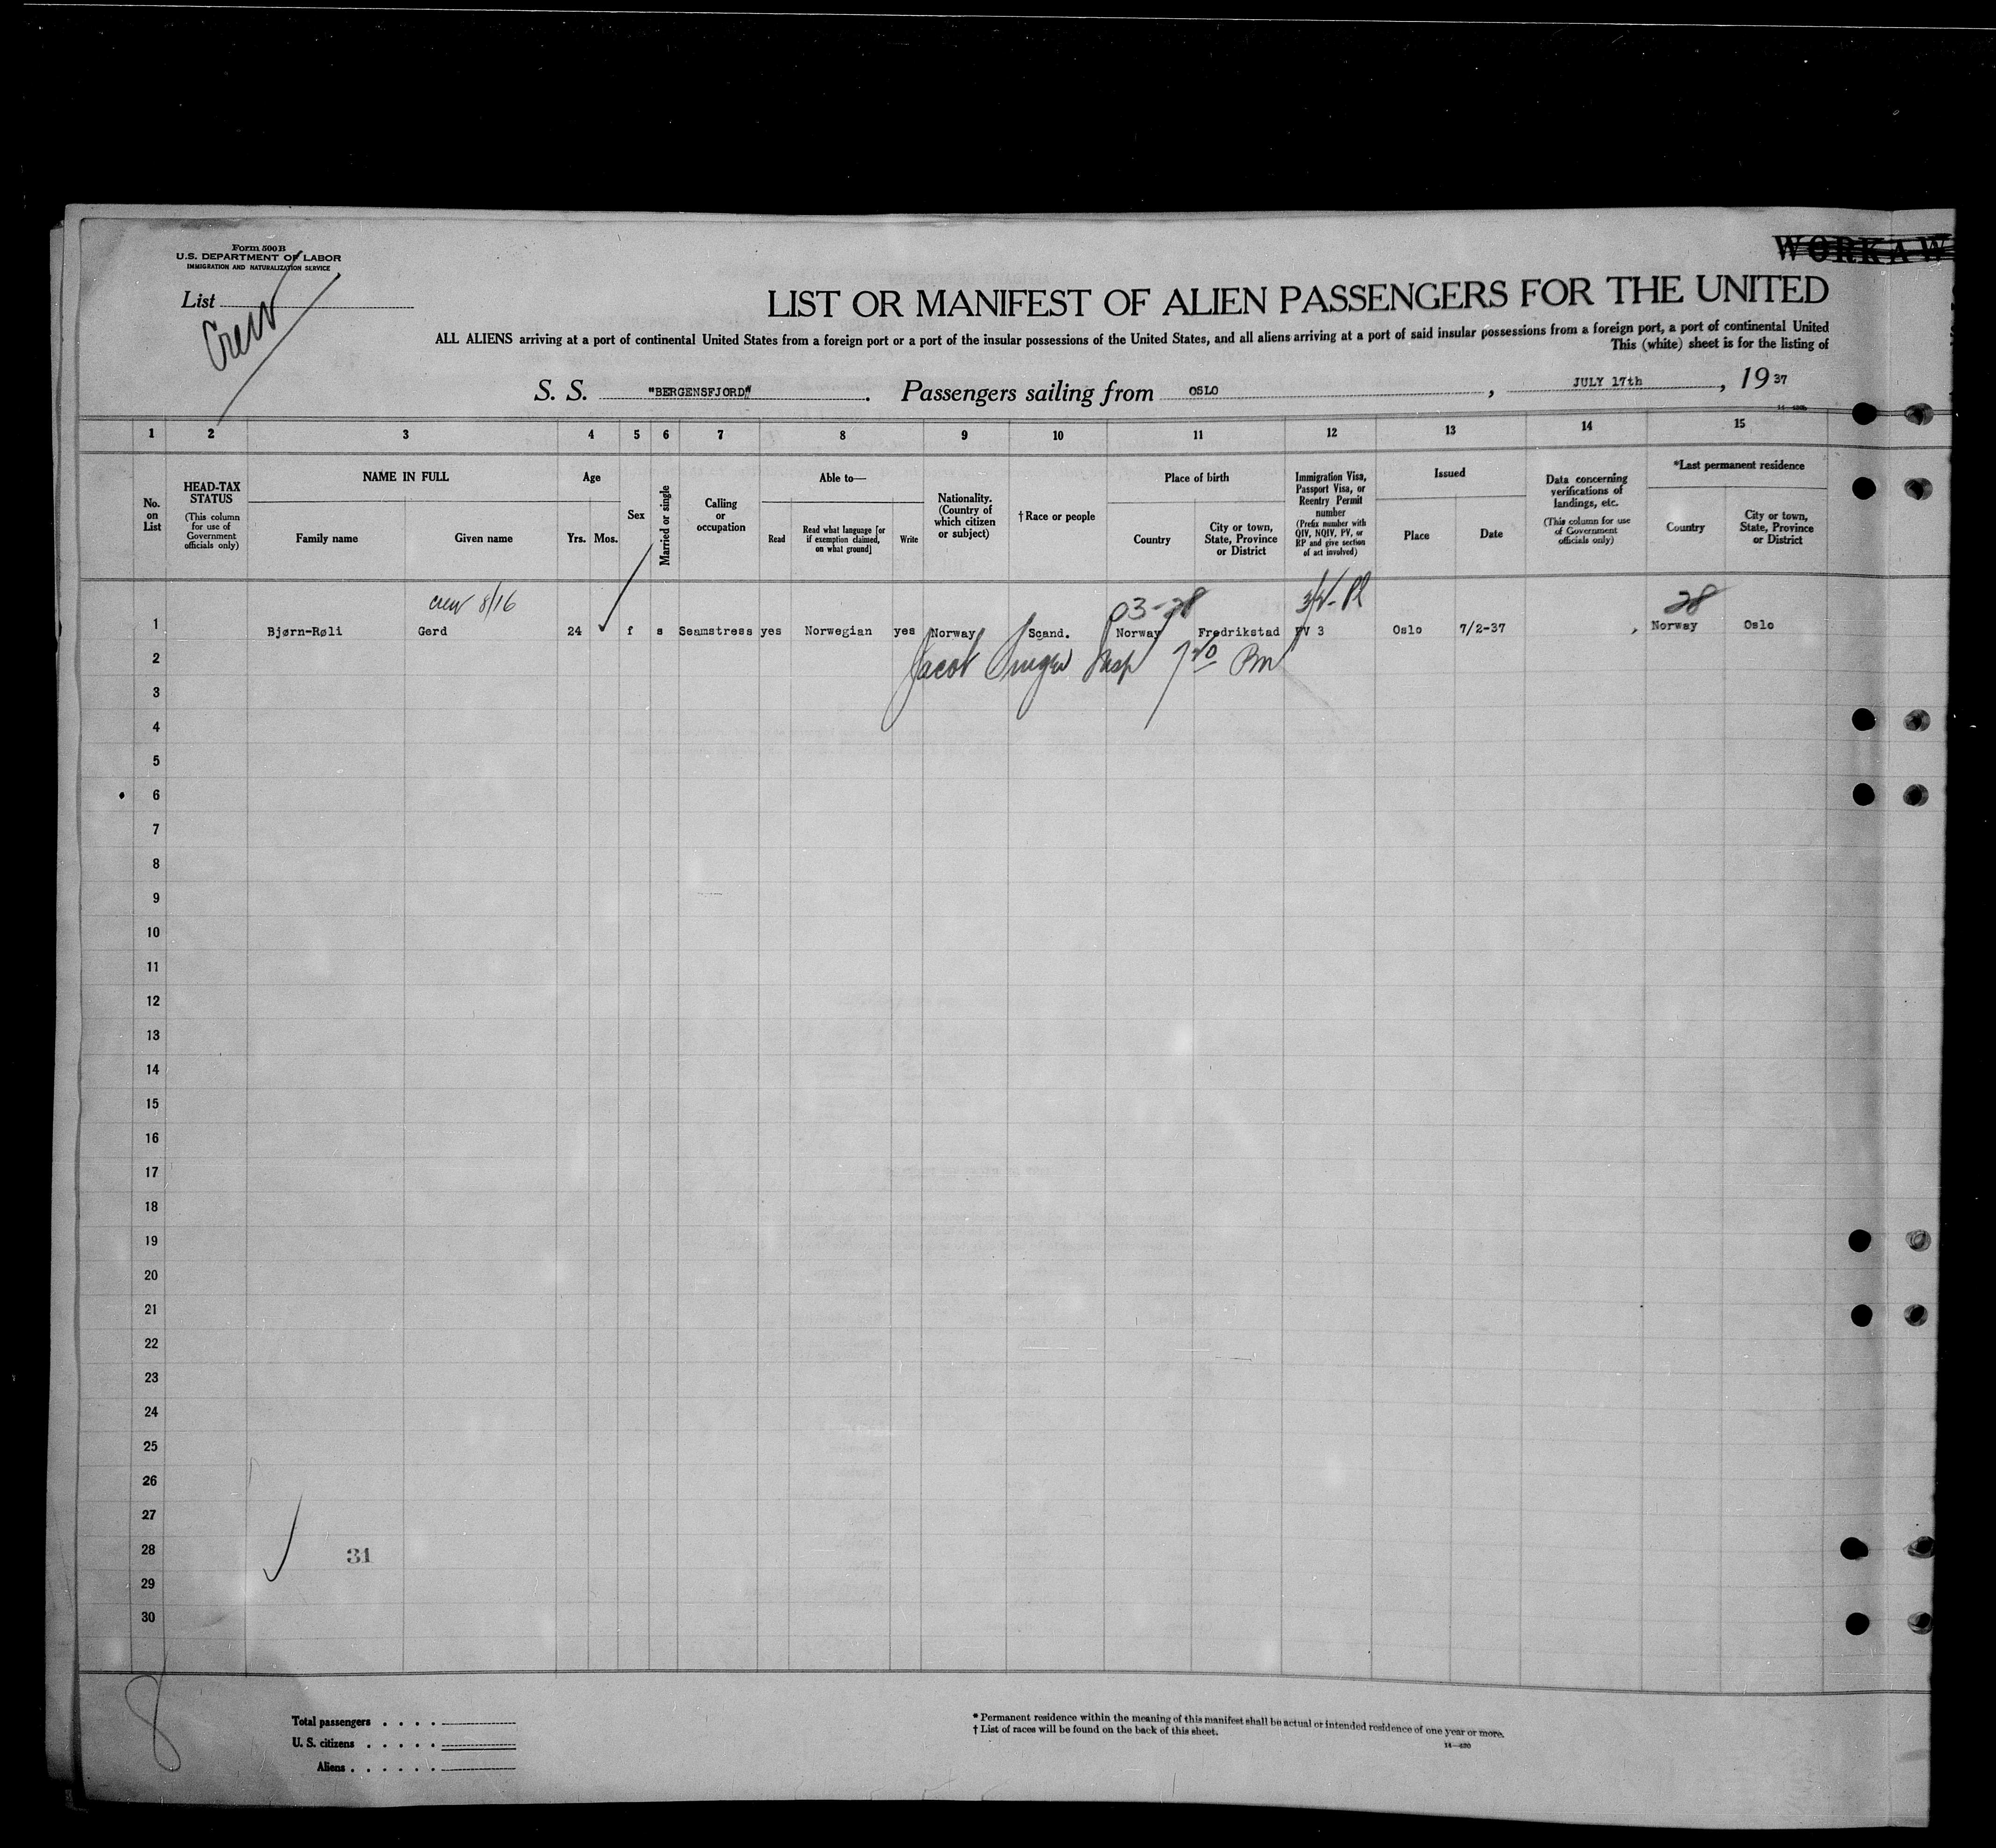 Form 500 B
U.S. DEPARTMENT OF LABOR
IMMIGRATION AND NATURALIZATION SERVICE
WORKAW
List
Crew
LIST OR MANIFEST OF ALIEN PASSENGERS FOR THE UNITED
ALL ALIENS arriving at a port of continental United States from a foreign port or a port of the insular possessions of the United States, and all aliens arriving at a port of said insular possessions from a foreign port, a port of continental United
This (white) sheet is for the listing of
S. S. "BERGENSFJORD". Passengers sailing from OSLO, JULY 17th, 19 37
1 2 3 4 5 6 7 8 9 10 11 12 13 14 15
No. on List
HEAD-TAX STATUS
(This column for use of Government officials only)
NAME IN FULL
Family name Given name
Age
Yrs. Mos.
Sex
Married or single
Calling or occupation
Able to—
Read Read what language [or if exemption claimed, on what ground] Write
Nationality. (Country of which citizen or subject)
†Race or people
Place of birth
Country City or town, State, Province or District
Immigration Visa, Passport Visa, or Reentry Permit number
(Prefix number with QIV, NQIV, PV, or RP and give section of act involved)
Issued
Place Date
Data concerning verifications of landings, etc.
(This column for use of Government officials only)
*Last permanent residence
Country City or town, State, Province or District
crew 8/16 03-28 28
1 Bjørn-Røli Gerd 24 f s Seamstress yes Norwegian yes Norway Scand. Norway Fredrikstad PV 3 Oslo 7/2-37 Norway Oslo
2 Jacob Insp
3
4
5
6
7
8
9
10
11
12
13
14
15
16
17
18
19
20
21
22
23
24
25
26
27
28 31
29
30
8
Total passengers . . . .
U. S. citizens . . . . .
Aliens . . . . . .
* Permanent residence within the meaning of this manifest shall be actual or intended residence of one year or more.
† List of races will be found on the back of this sheet.